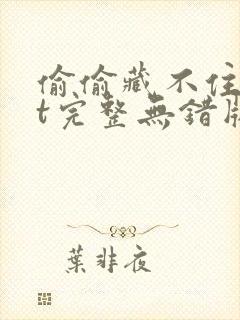 偷偷藏不住
t完整無錯版
葉非夜